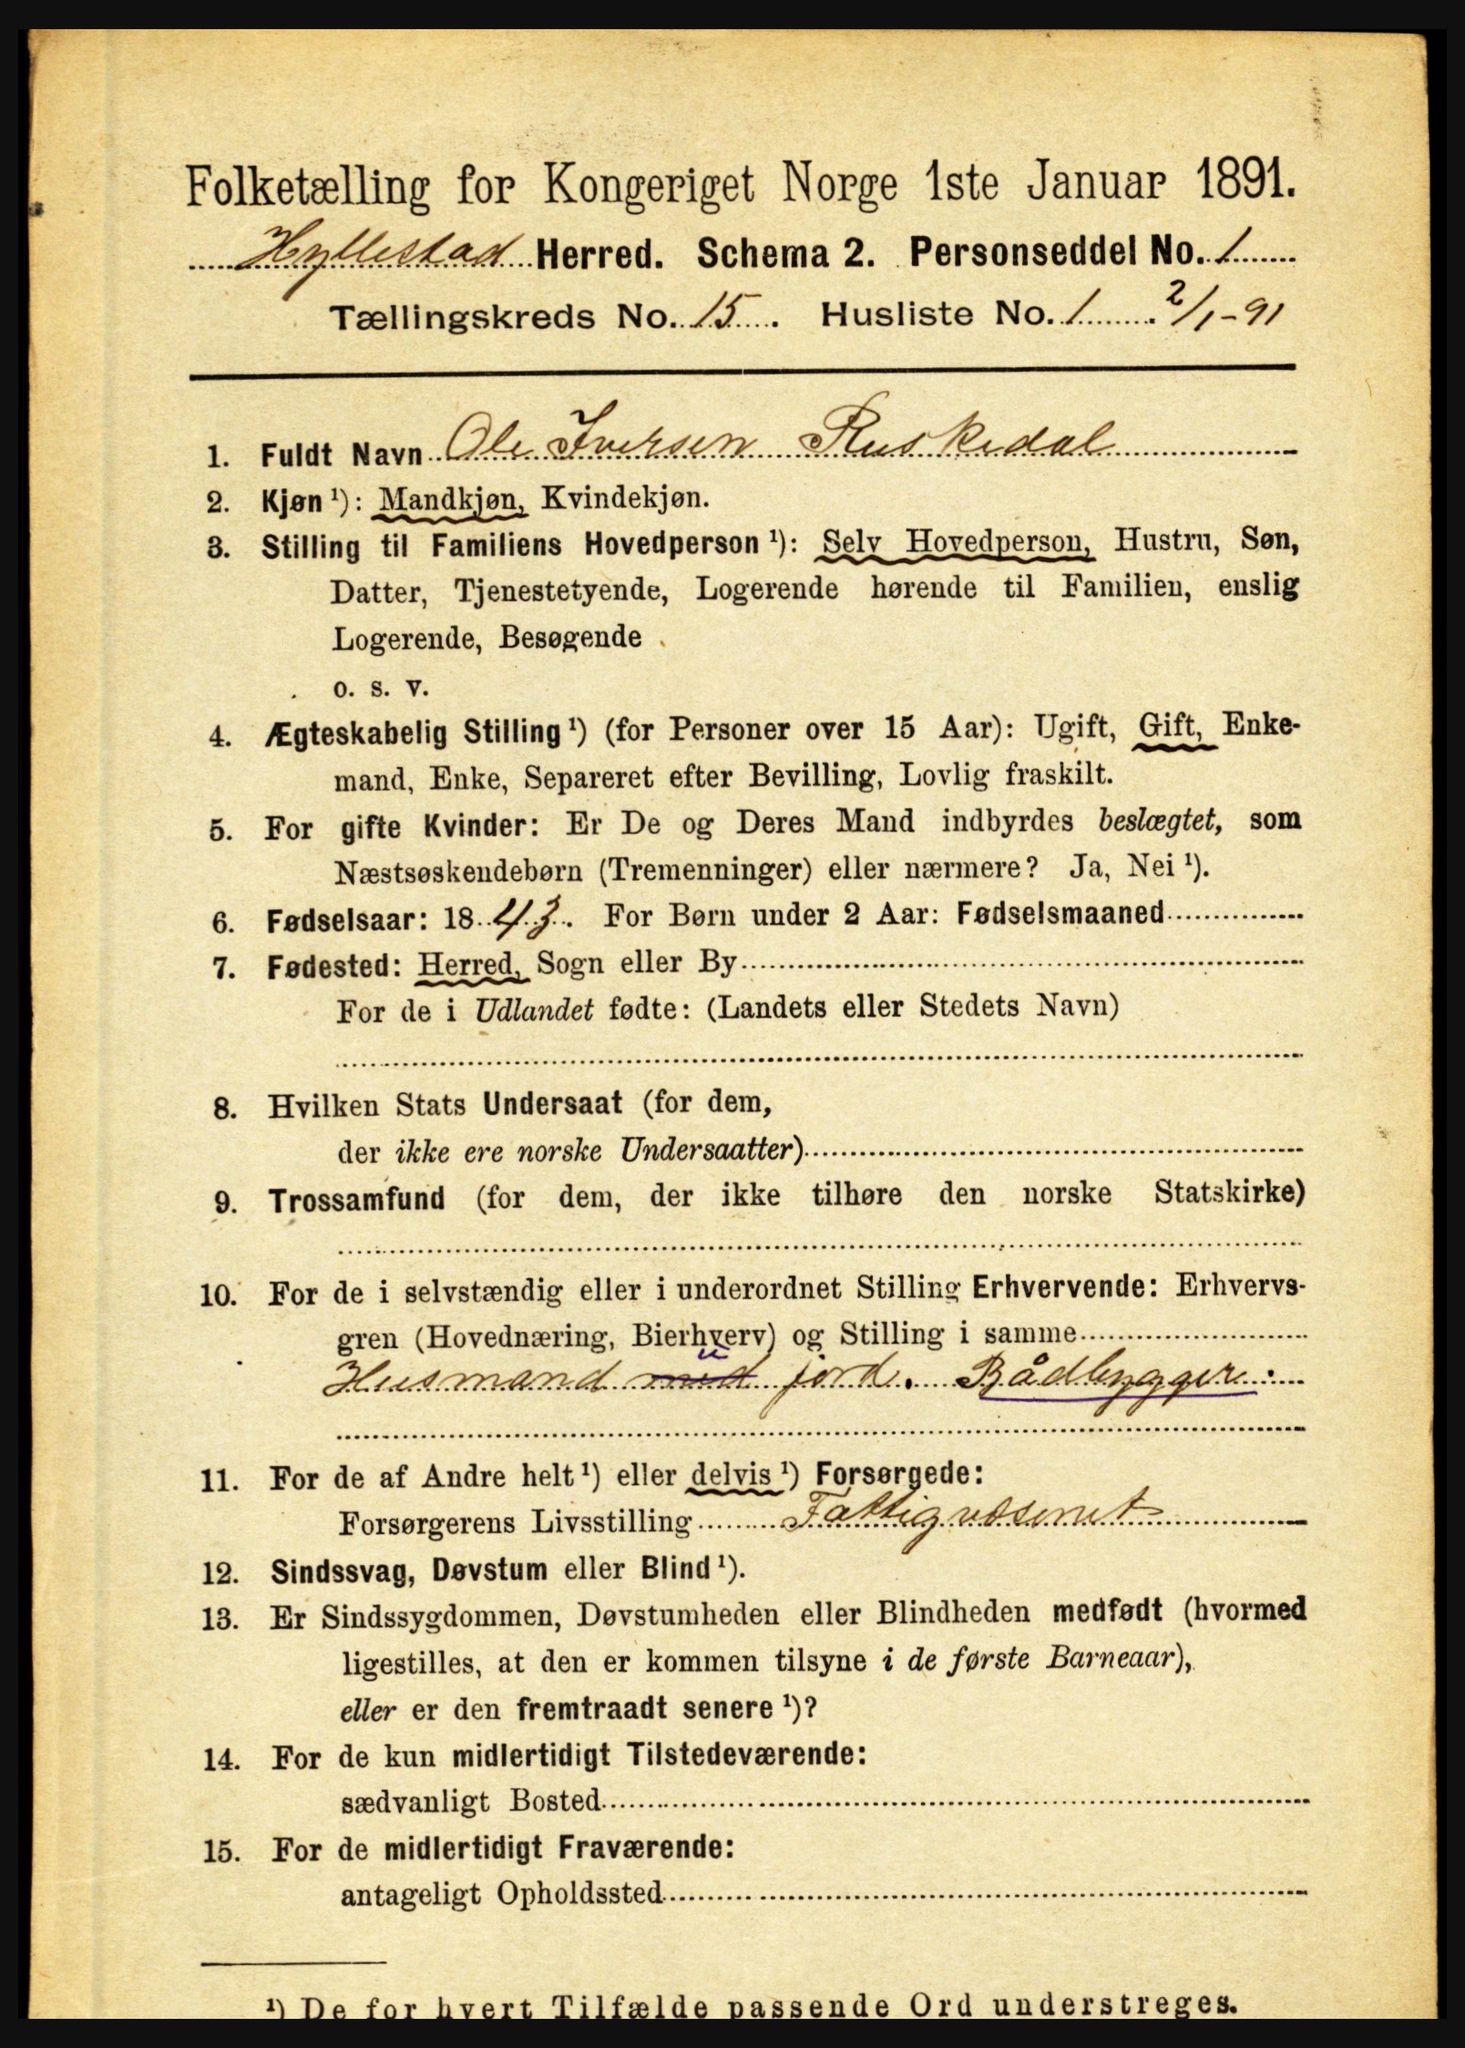 Folketælling for Kongeriget Norge 1ste Januar 1891.
Hyllestad Herred. Schema 2. Personseddel No. 1
Tællingskreds No. 15. Husliste No. 1. 2/1-91
1. Fuldt Navn Ole Iversen Ruskedal
2. Kjøn ¹): Mandkjøn, Kvindekjøn.
3. Stilling til Familiens Hovedperson ¹): Selv Hovedperson, Hustru, Søn,
Datter, Tjenestetyende, Logerende hørende til Familien, enslig
Logerende, Besøgende
o. s. v.
4. Ægteskabelig Stilling ¹) (for Personer over 15 Aar): Ugift, Gift, Enke-
mand, Enke, Separeret efter Bevilling, Lovlig fraskilt.
5. For gifte Kvinder: Er De og Deres Mand indbyrdes beslægtet, som
Næstsøskendebørn (Tremenninger) eller nærmere? Ja, Nei ¹).
6. Fødselsaar: 1843. For Børn under 2 Aar: Fødselsmaaned
7. Fødested: Herred, Sogn eller By
For de i Udlandet fødte: (Landets eller Stedets Navn)
8. Hvilken Stats Undersaat (for dem,
der ikke ere norske Undersaatter)
9. Trossamfund (for dem, der ikke tilhøre den norske Statskirke)
10. For de i selvstændig eller i underordnet Stilling Erhvervende: Erhvervs-
gren (Hovednæring, Bierhverv) og Stilling i samme
u
Husmand med jord. Bådbygger.
11. For de af Andre helt ¹) eller delvis ¹) Forsørgede:
Forsørgerens Livsstilling Fattigvæsenet
12. Sindssvag, Døvstum eller Blind ¹).
13. Er Sindssygdommen, Døvstumheden eller Blindheden medfødt (hvormed
ligestilles, at den er kommen tilsyne i de første Barneaar),
eller er den fremtraadt senere ¹)?
14. For de kun midlertidigt Tilstedeværende:
sædvanligt Bosted
15. For de midlertidigt Fraværende:
antageligt Opholdssted
¹) De for hvert Tilfælde passende Ord understreges.